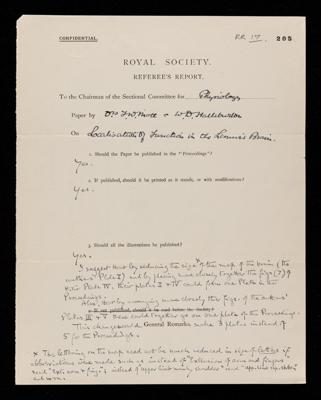 CONFIDENTIAL.
R.R. 17. 205
ROYAL SOCIETY.
REFEREE'S REPORT.
To the Chairman of the Sectional Committee for Physiology
Paper by Drs F.W. Mott & W.D. Halliburton
On Localisation of Function in the Lemur's Brain.
1. Should the Paper be published in the "Proceedings"?
Yes.
2. If published, should it be printed as it stands, or with modifications?
Yes.
3. Should all the illustrations be published?
Yes.
I suggest that by reducing the size* of the map of the brain (the
authors' Plate I) and by placing more closely together the figs (7) of
their Plate IV, their plates I & IV could form one Plate in the
Proceedings.
Also, that by arranging more closely the figs. of the authors'
Plates III & V these could together go on one plate of the Proceedings.
This change would make 3 plates instead of
General Remarks.
5 for the Proceedings.
* The lettering on the map need not be much reduced in size if letters of
abbreviations were made such as instead of "Extension of arm and fingers"